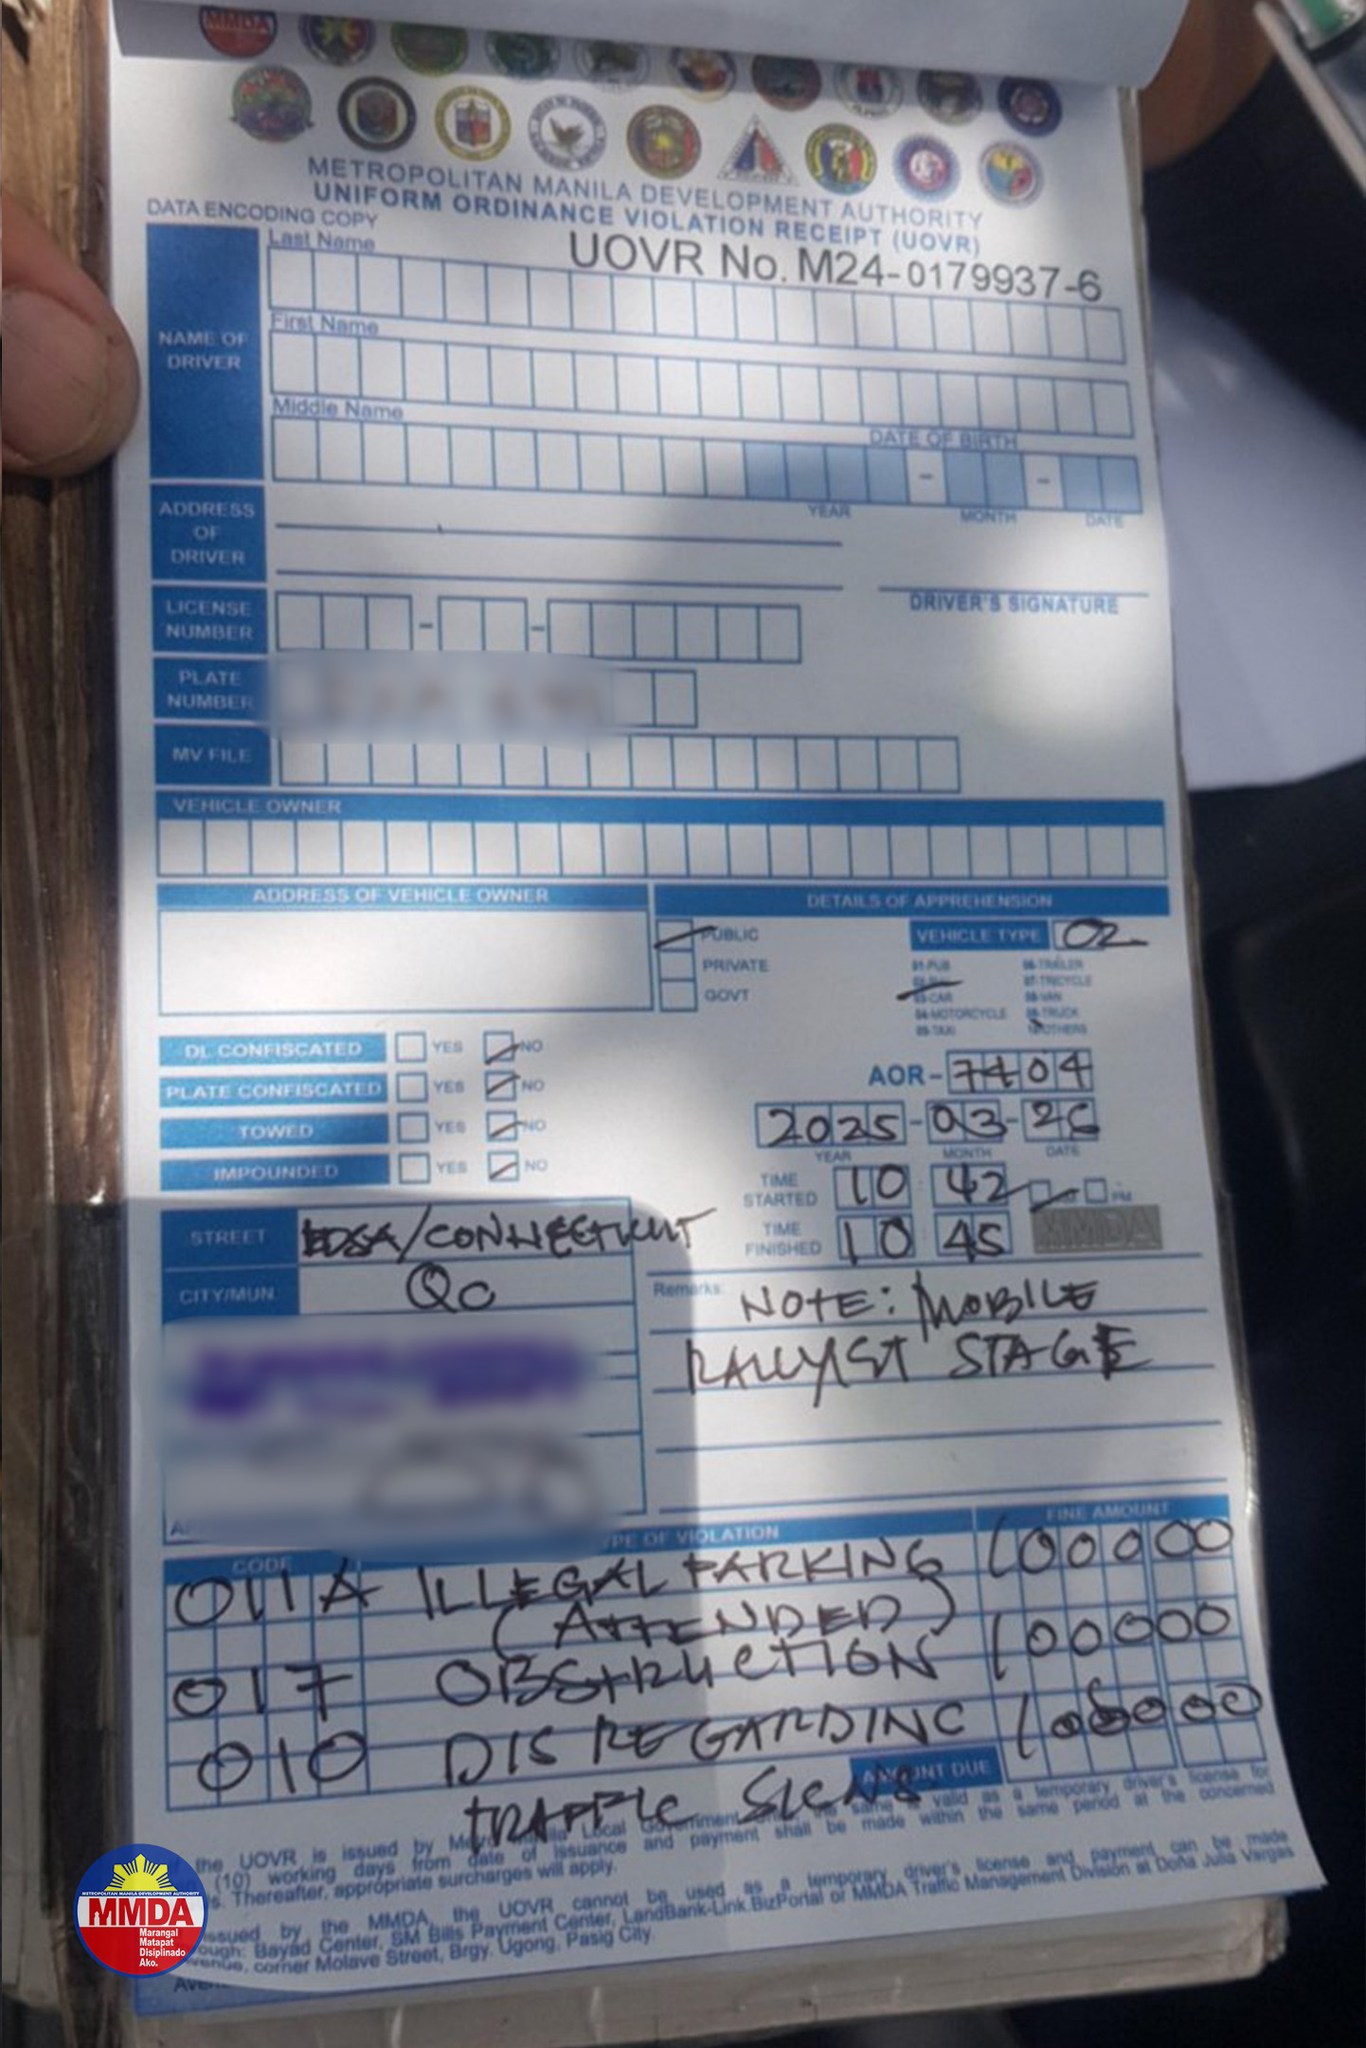 MMDA
METROPOLITAN MANILA DEVELOPMENT AUTHORITY
UNIFORM ORDINANCE VIOLATION RECEIPT (UOVR)
DATA ENCODING COPY
UOVR No. M24-0179937-6
NAME OF DRIVER
Last Name
First Name
Middle Name
DATE OF BIRTH
YEAR MONTH DATE
ADDRESS OF DRIVER
DRIVER'S SIGNATURE
LICENSE NUMBER
PLATE NUMBER
MV FILE
VEHICLE OWNER
ADDRESS OF VEHICLE OWNER
DETAILS OF APPREHENSION
PUBLIC
PRIVATE
GOVT
VEHICLE TYPE 02
01-PUB 06-TRAILER
07-TRICYCLE
03-CAR 08-VAN
04-MOTORCYCLE 09-TRUCK
05-TAXI 10-OTHERS
DL CONFISCATED YES NO
PLATE CONFISCATED YES NO
TOWED YES NO
IMPOUNDED YES NO
AOR- 7404
2025-03-26
YEAR MONTH DATE
TIME STARTED 10 42 PM
TIME FINISHED 10 45
MMDA
STREET EDSA/CONNECTICUT
CITY/MUN. QC
Remarks: NOTE: MOBILE
RALLYIST STAGE
CODE TYPE OF VIOLATION FINE AMOUNT
011A ILLEGAL PARKING 100000
(ATTENDED)
017 OBSTRUCTION 100000
010 DISREGARDING 100000
TRAFFIC SIGNS
AMOUNT DUE
the UOVR is issued by Metro Manila Local Government the same is valid as a temporary driver's license for
(10) working days from date of issuance and payment shall be made within the same period at the concerned
Thereafter, appropriate surcharges will apply.
issued by the MMDA, the UOVR cannot be used as a temporary driver's license and payment can be made
through: Bayad Center, SM Bills Payment Center, LandBank-Link.BizPortal or MMDA Traffic Management Division at Doña Julia Vargas
Avenue, corner Molave Street, Brgy. Ugong, Pasig City.
METROPOLITAN MANILA DEVELOPMENT AUTHORITY
MMDA
Marangal
Matapat
Disiplinado
Ako.